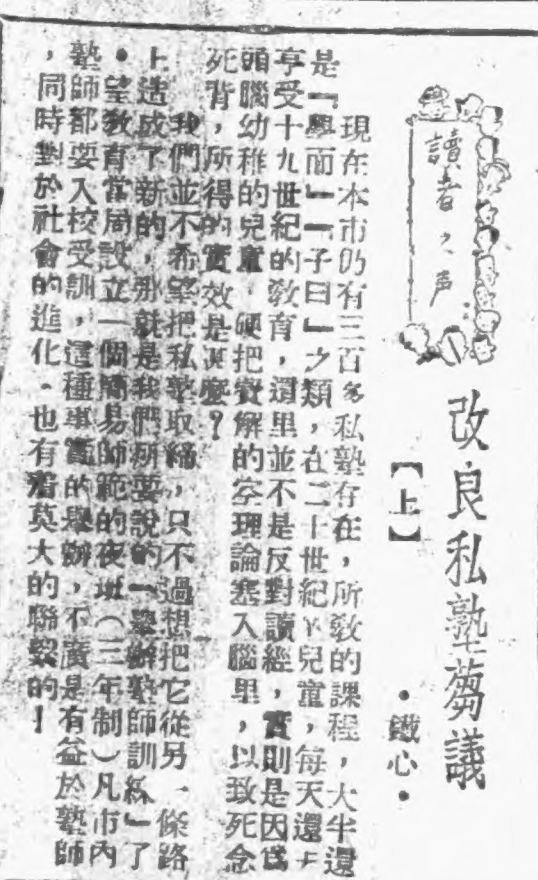 讀者之声
改良私塾芻議
【上】
•鐵心•
現在本市仍有三百多私塾存在，所敎的課程，大半還
是『學而』『子曰』之類，在二十世紀兒童，每天還
享受十九世紀的敎育，這里並不是反對讀經，實則是因爲
頭腦幼稚的兒童，硬把費解的空理論塞入腦里，以致死念
死背，所得的實效是甚麼？
我們並不希望把私塾取締，只不過想把它從另一條路
上造成了新的，那就是我們所要說的『舉辦塾師訓練』了
•望敎育當局設立一個簡易師範的夜班（三年制）凡市內
塾師都要入校受訓，這種事實的舉辦，不廣是有益於塾師
，同時對於社會的進化。也有着莫大的聯繫的！